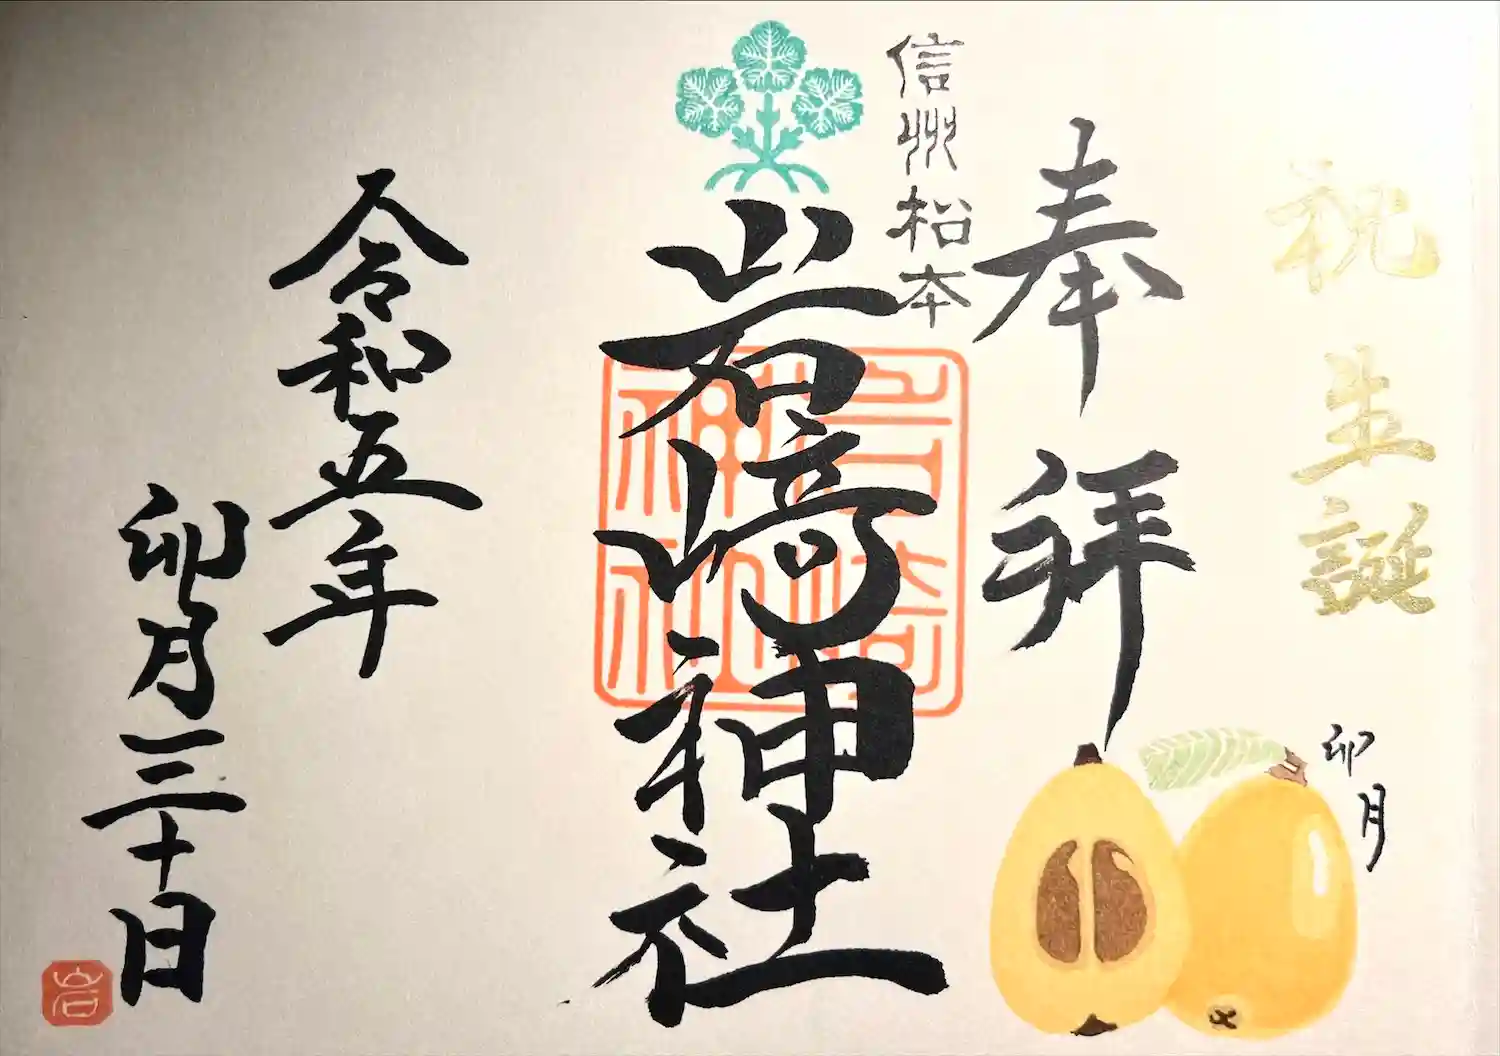 祝生誕
卯月
奉拝
信州松本
岩崎神社
岩崎神社
令和五年
卯月三十日
岩